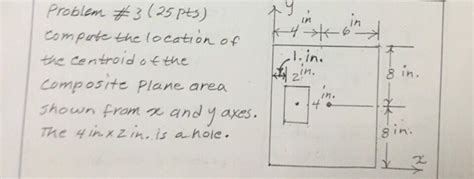 Problem #3 (25 pts)
Compute the location of
the centroid of the
composite plane area
shown from x and y axes.
The 4 in x 2 in. is a hole.
y
in in
4 6
1. in.
2 in.
4 in.
8 in.
8 in.
x